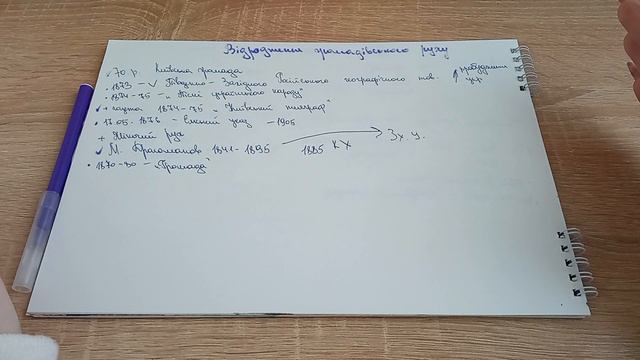 Відродження громадівського руху
70 р. Київська громада
1873 – Південно – Західного Російського географічного тов.
1874-75 – „Пісні українського народу"
+ газета 1874-75 – „Київський телеграф"
17.05.1876 – Емський указ – 1905
+
М. Драгоманов 1841-1895 1885 КХ Зх. У.
1870-90 – „Громада"